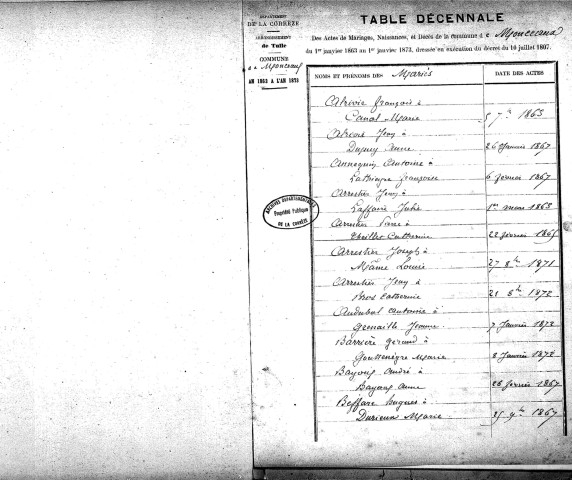 DÉPARTEMENT
DE LA CORRÈZE
ARRONDISSEMENT
de Tulle
COMMUNE
de Monceaux
AN 1863 A L'AN 1873
TABLE DÉCENNALE
Des Actes de Mariages, Naissances, et Décès de la commune de Monceaux
du 1er janvier 1863 au 1er janvier 1873, dressée en exécution du décret du 10 juillet 1807.
NOMS ET PRÉNOMS DES Mariés DATE DES ACTES
François à
Canal Marie 5 7bre 1863
Jean à
Dupuy Anne 26 Janvier 1867
Annequin Antoine à
Françoise 6 février 1867
Arrestier Jean à
Laffaire Julie 1er mars 1863
à
Catherine 22 février 1865
Arrestier Joseph à
Mâme Louise 27 8bre 1871
Arrestier Jean à
Bros Catherine 21 8bre 1872
Audubal Antoine à
Grenaille Jeanne 7 Janvier 1872
Barrière Géraud à
Gouttenègre Marie 8 Janvier 1872
Bayoux André à
Bayoux Anne 26 février 1867
Beffare Hugues à
Durieux Marie 25 9bre 1867
ARCHIVES DÉPARTEMENTALES
Propriété Publique
DE LA CORRÈZE